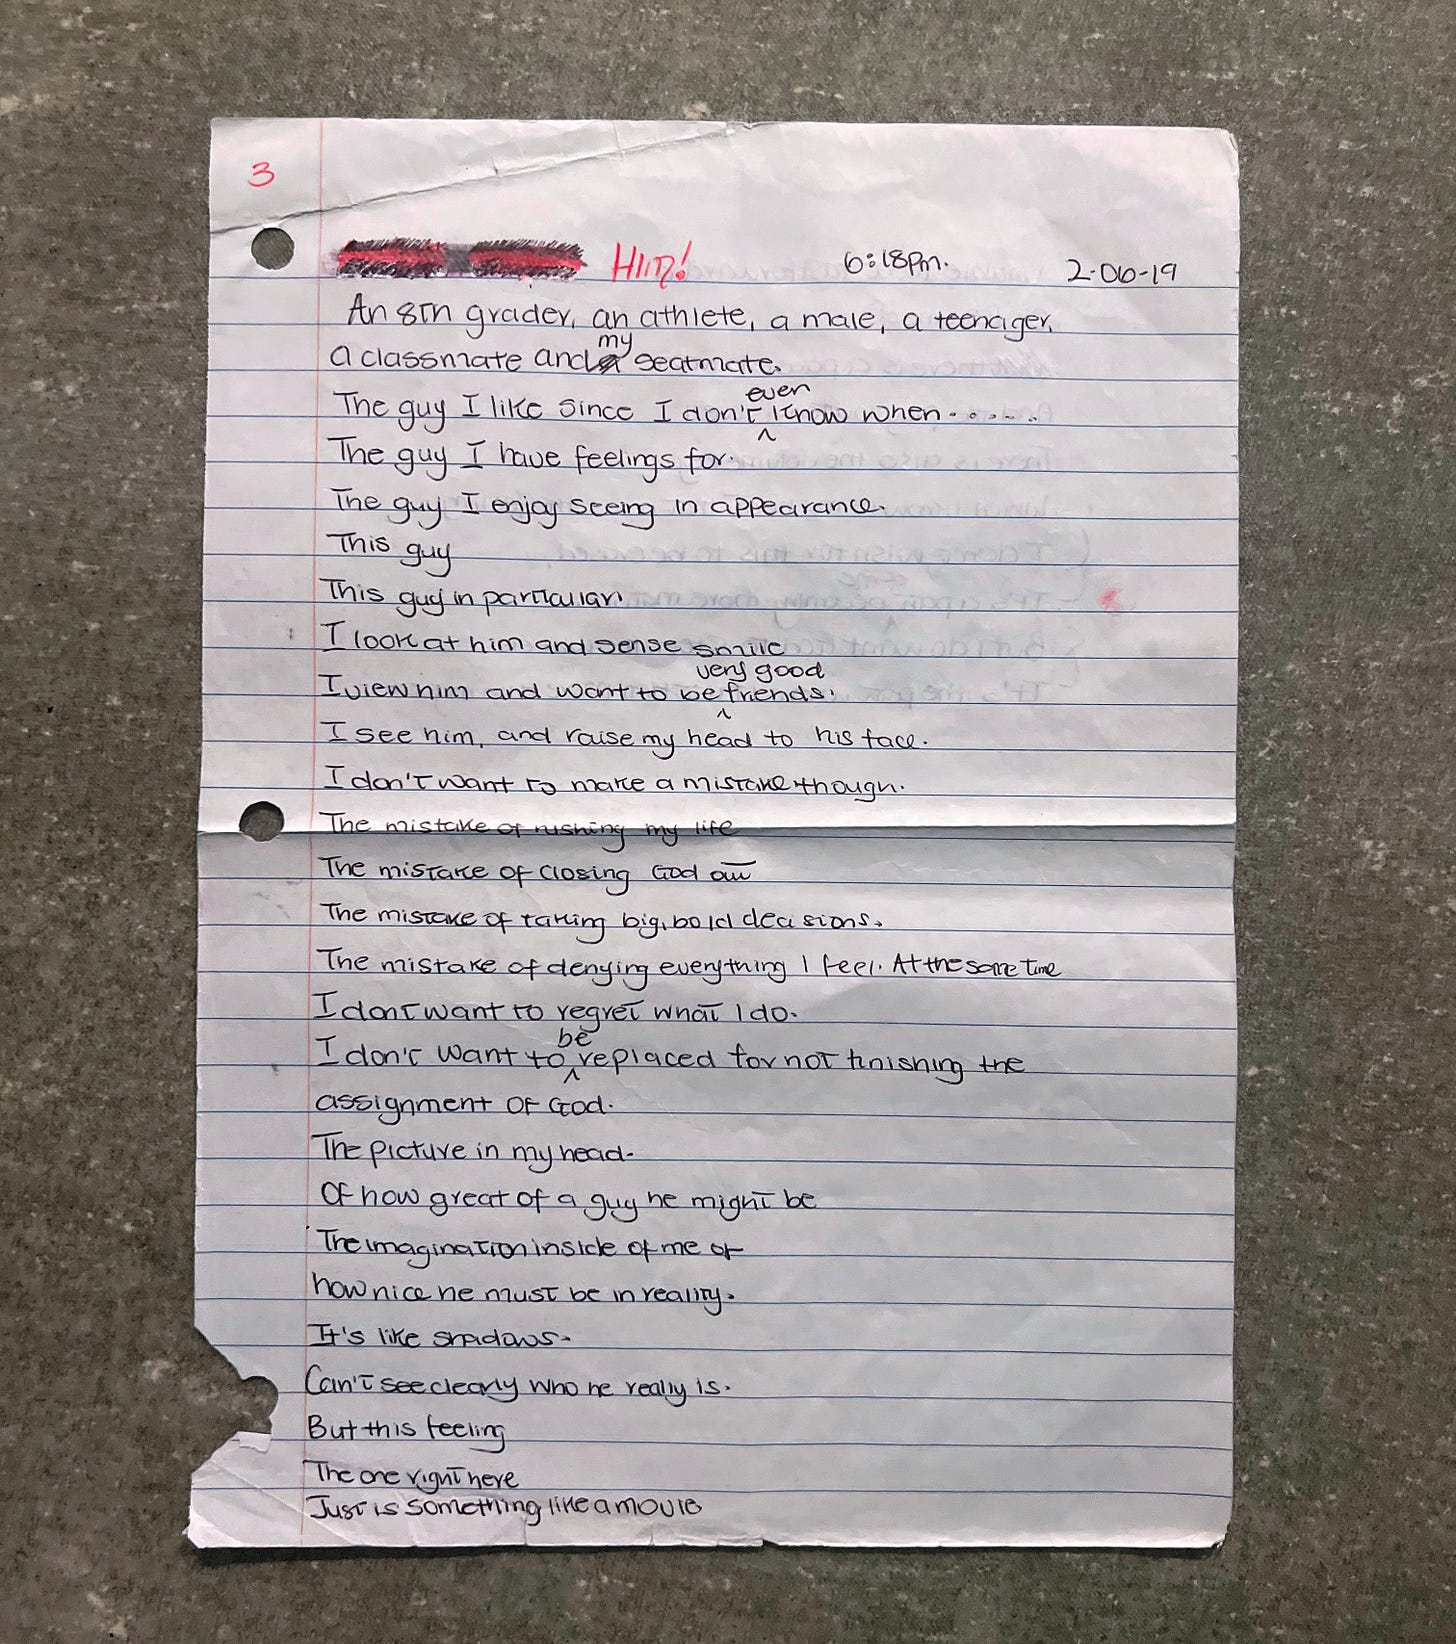 3
Him! 6:18pm. 2-06-19
An 8th grader, an athlete, a male, a teenager,
a classmate and my seatmate.
The guy I like since I don't even know when......
The guy I have feelings for.
The guy I enjoy seeing in appearance.
This guy
This guy in particular.
I look at him and sense smile
I view him and want to be very good friends.
I see him, and raise my head to his face.
I don't want to make a mistake though.
The mistake of rushing my life
The mistake of closing God out
The mistake of taking big, bold decisions.
The mistake of denying everything I feel. At the same time
I dont want to regret what I do.
I don't want to be replaced for not finishing the
assignment of God.
The picture in my head.
Of how great of a guy he might be
The imagination inside of me of
how nice he must be in reality.
It's like shadows.
Can't see clearly who he really is.
But this feeling
The one right here
Just is something like a movie